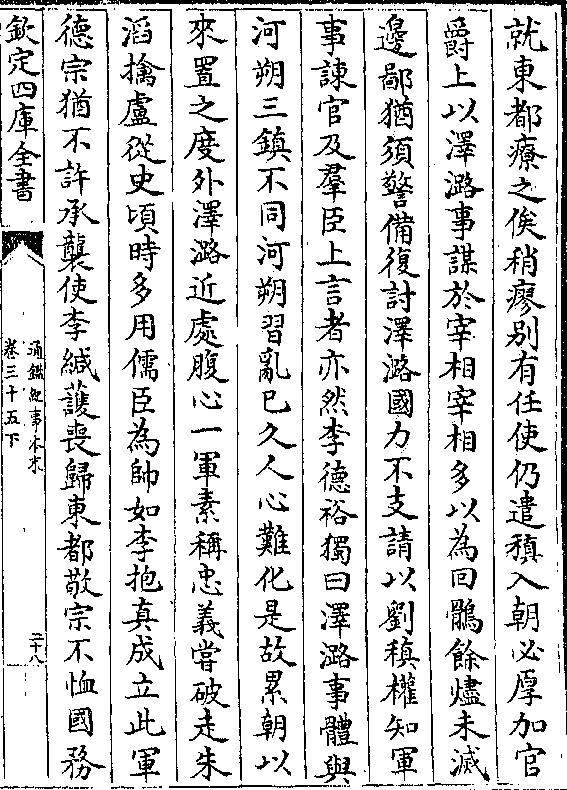 就東都療之俟稍瘳别有任使仍遣稹入朝必厚加官
爵上以澤潞事謀於宰相宰相多以為回鶻餘燼未滅
邊鄙猶須警備復討澤潞國力不支請以劉稹權知軍
事諫官及羣臣上言者亦然李德裕獨曰澤潞事體與
河朔三鎮不同河朔習亂已久人心難化是故累朝以
來置之度外澤潞近處腹心一軍素稱忠義嘗破走朱
滔擒盧從史頃時多用儒臣為帥如李抱真成立此軍
德宗猶不許承襲使李緘護喪歸東都敬宗不恤國務
欽定四庫全書
通鑑紀事本末
卷三十五下
二十八